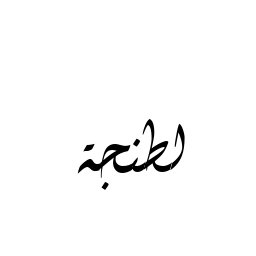 لطنجة